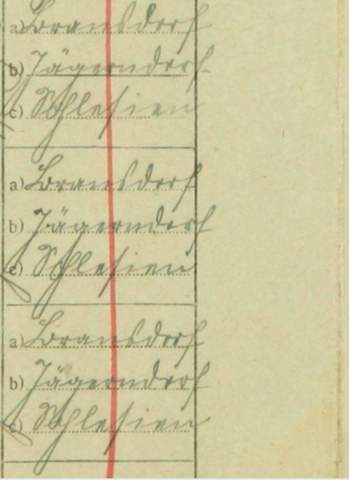 a) Bransdorf
b) Jägerndorf
c) Schlesien
a) Bransdorf
b) Jägerndorf
c) Schlesien
a) Bransdorf
b) Jägerndorf
c) Schlesien